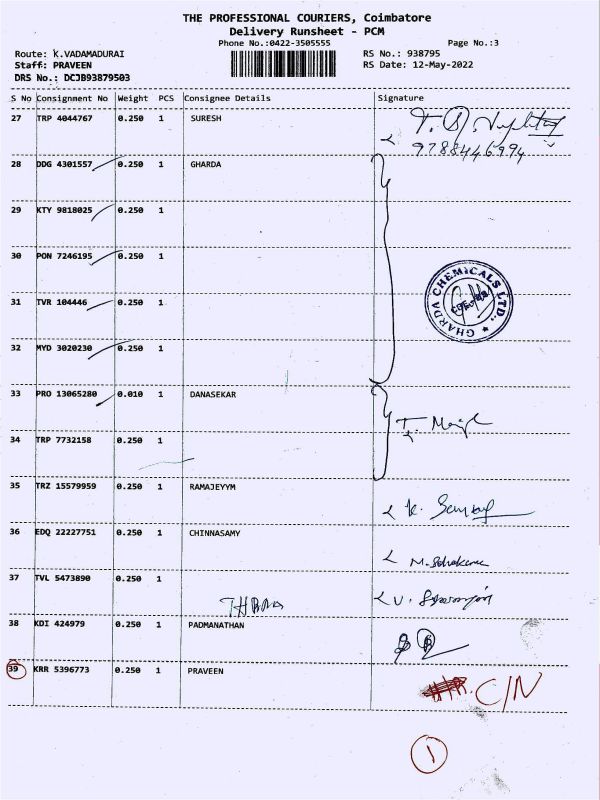 THE PROFESSIONAL COURIERS, Coimbatore
Delivery Runsheet - PCM
Phone No.:0422-3505555 Page No.:3
Route: K.VADAMADURAI RS No.: 938795
Staff: PRAVEEN RS Date: 12-May-2022
DRS No.: DCJB93879503
S No Consignment No Weight PCS Consignee Details Signature
27 TRP 4044767 0.250 1 SURESH
9788446994
28 DDG 4301557 0.250 1 GHARDA
29 KTY 9818025 0.250 1
30 PON 7246195 0.250 1
GHARDA CHEMICALS LTD.,
31 TVR 104446 0.250 1
32 MYD 3020230 0.250 1
33 PRO 13065280 0.010 1 DANASEKAR
34 TRP 7732158 0.250 1
35 TRZ 15579959 0.250 1 RAMAJEYYM
36 EDQ 22227751 0.250 1 CHINNASAMY
37 TVL 5473890 0.250 1
38 KDI 424979 0.250 1 PADMANATHAN
39 KRR 5396773 0.250 1 PRAVEEN
C/N
1